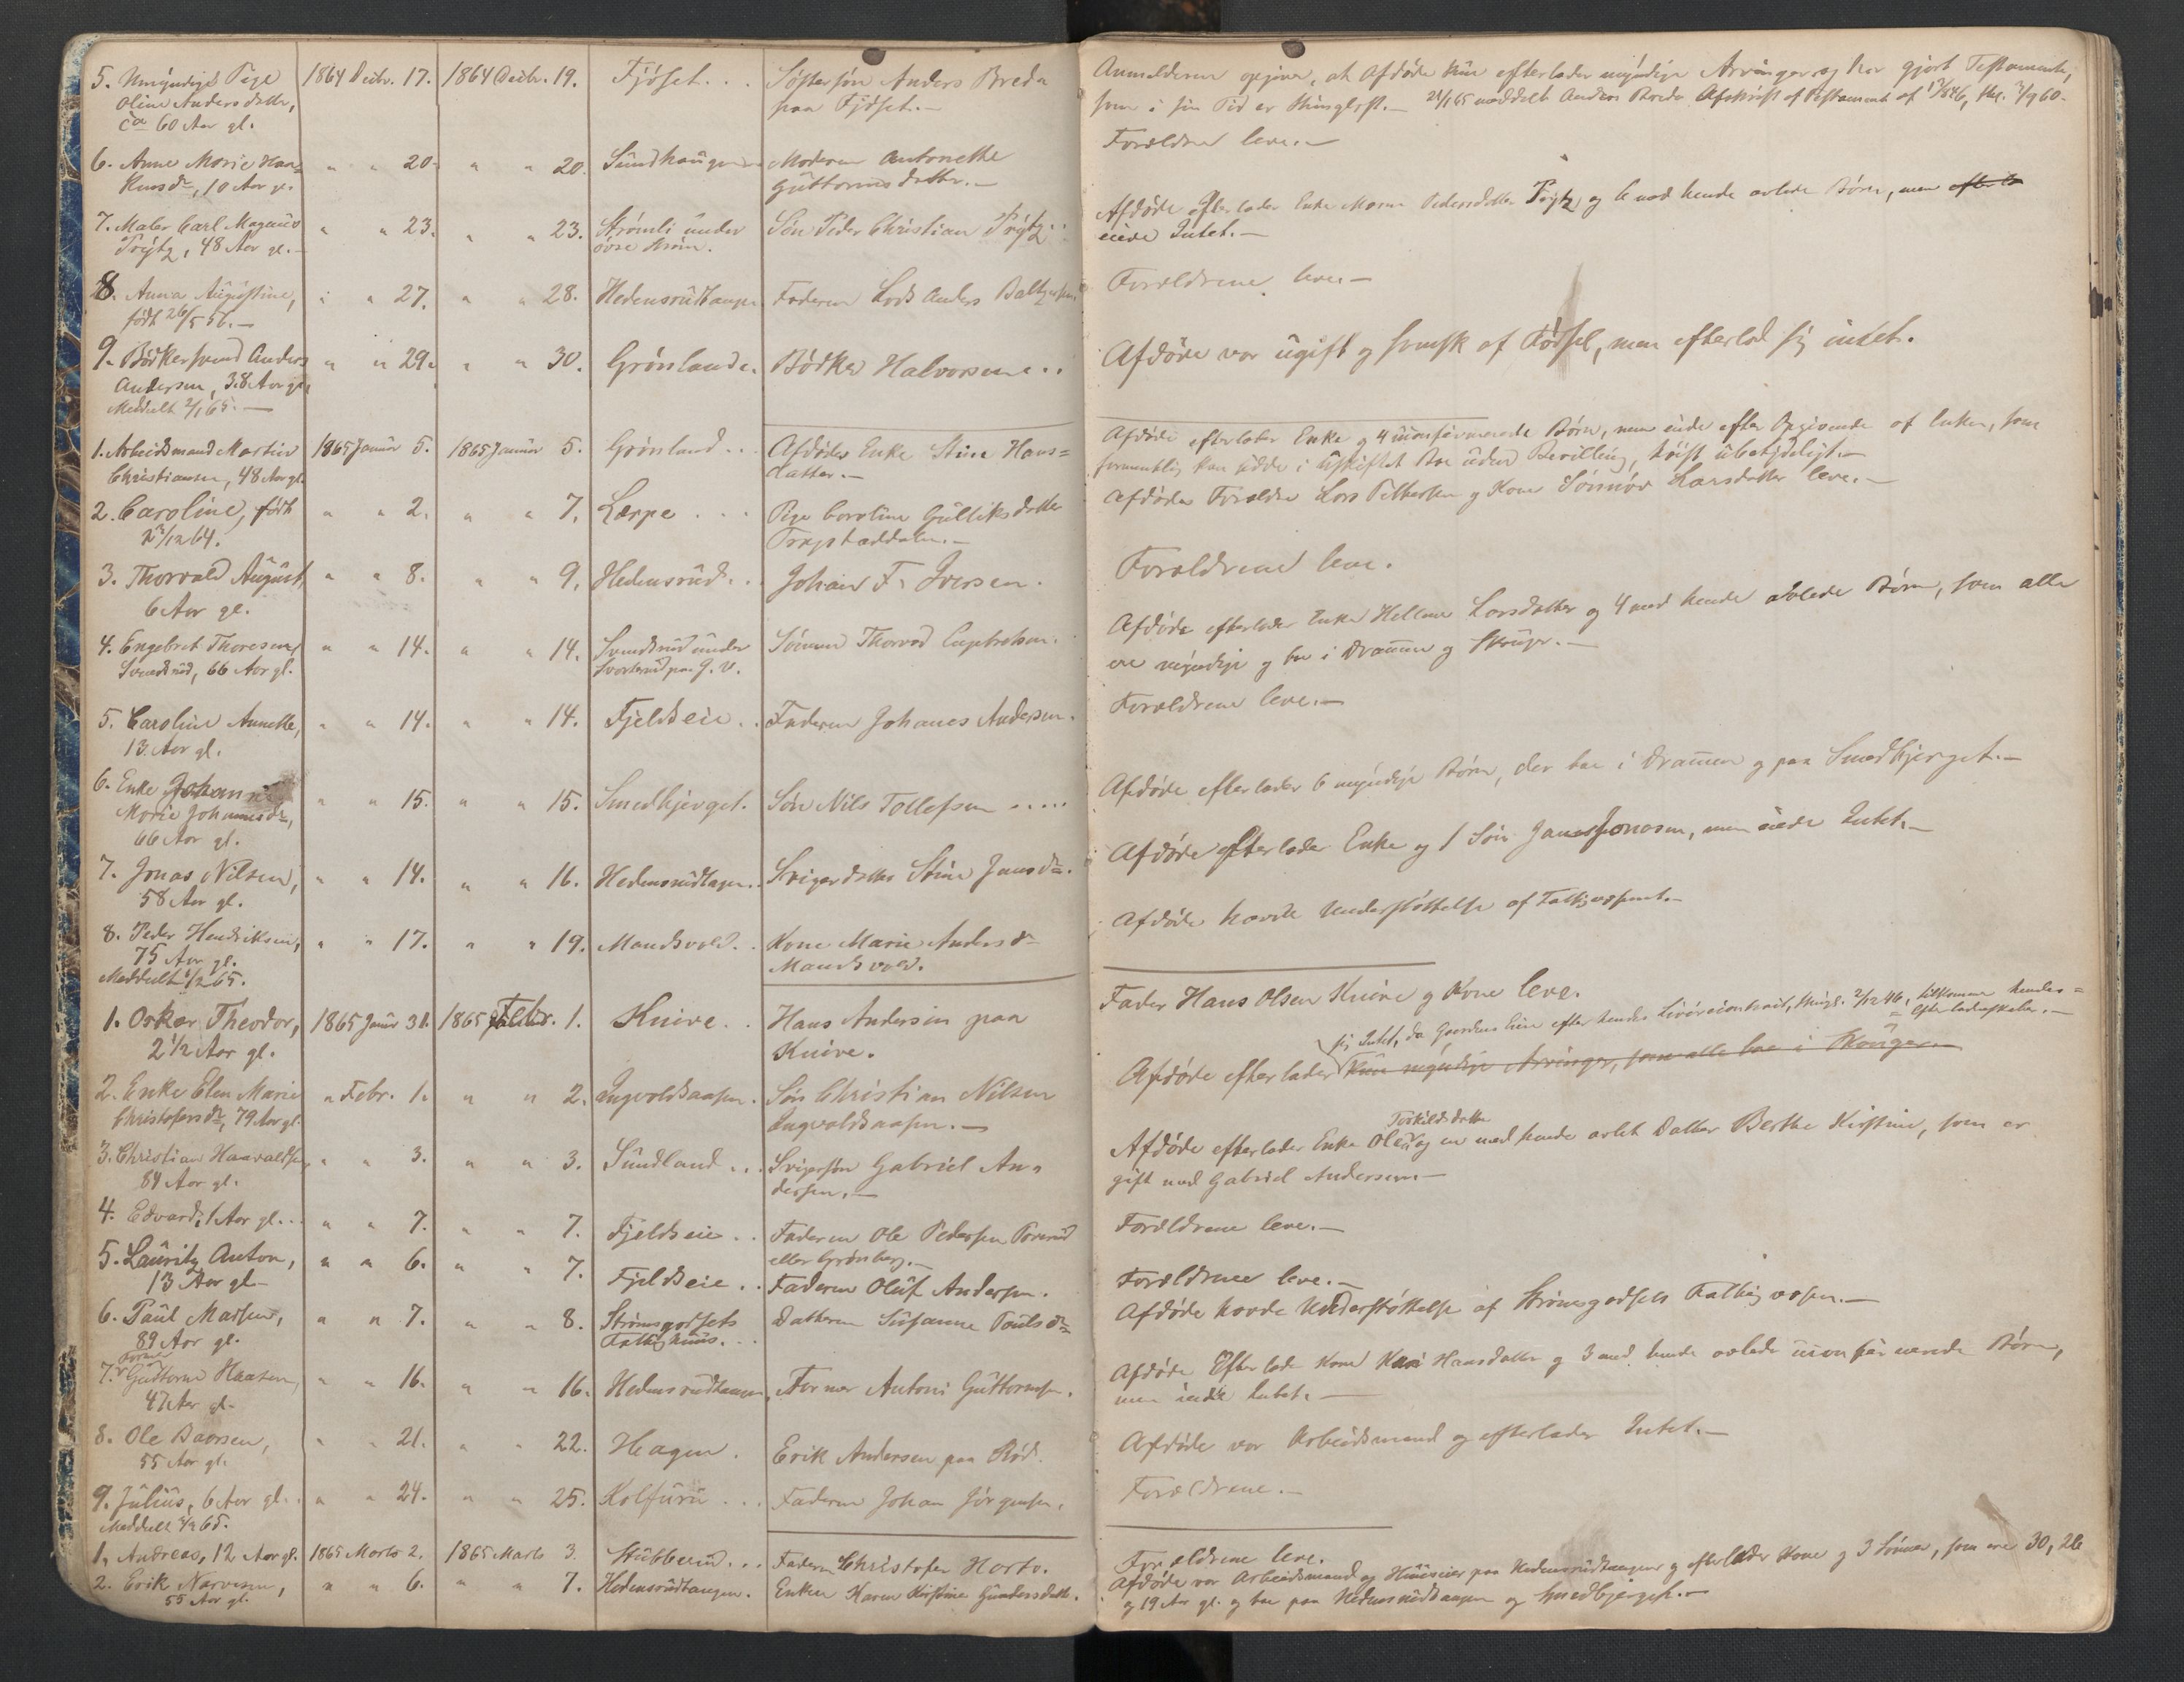 5. Umyndige Pige
Oline Anders datter,
ca 60 Aar gl.
1864 Decbr. 17.
1864 Decbr. 19.
Fjøset. . .
Søstersøn Anders Breda
paa Fjøset.—
Anmelderen opgiver, at Afdøde kun efterlader myndige Arvinger og har gjort Testamente,
som i sin Tid er thinglyst.— 21/1 65 meddelt Anders Breda Afskrift af Testament af
6. Anne Marie Haa=
kensdr, 10 Aar gl.
" " 20.
" " 20.
Sundhaugen
Moderen Antonette
Guttormsdatter.—
Forældrene leve.—
7. Maler Carl Magnus
Prytz, 48 Aar gl.—
" " 23.
" " 23.
Strømli under
øvre Strøm.
Søn Peder Christian Prytz..
Afdøde efterlader Enke Maren Pedersdatter Prytz og 6 med hende avlede Børn, men
eiede Intet.—
8. Anna Augustine,
født 26/5 56.—
" " 27.
" " 28.
Hedensrudtangen
Faderen Lods Anders Baltzersen
Forældrene leve.—
9. Bødkersvend Anders
Andersen, 38 Aar gl.
Meddelt 2/1 65.—
" " 29.
" " 30.
Grønlande.
Bødker Halvorsen...
Afdøde var ugift og svensk af Fødsel, men efterlod sig intet.
1. Arbeidsmand Martin
Christiansen, 48 Aar gl.
1865 Januar 5.
1865 Januar 5.
Grønland...
Afdødes Enke Stine Hans=
datter.—
Afdøde efterlader Enke og 4 uconfirmerede Børn, men eiede efter Opgivende af Enken, som
formentlig kan sidde i uskiftet Boe uden Bevilling, høist ubetydeligt.—
2. Caroline, født
" " 2.
" " 7.
Lerpe . . .
Pige Caroline Gulliksdatter
Afdødes Forældre Lars Pettersen og Kone Sønnøv Larsdatter leve.—
3. Thorvald August,
6 Aar gl.
" " 8.
" " 9.
Hedensrud. . .
Johan F. Iversen.
Forældrene leve.
4. Engebret Thoresen
Svendsrud, 66 Aar gl.
" " 14.
" " 14.
Svendsrud under
Svarterud paa G. V.
Sønnen Thorvod Engebretsen.
Afdøde efterlader Enke Hellene Larsdatter og 4 med hende avlede Børn, som alle
ere myndige og boe i Drammen og Skouger.—
5. Caroline Annette,
13 Aar gl.
" " 14.
" " 14.
Fjeldseie. .
Faderen Johanes Andersen.
Forældrene leve.—
6. Enke Johanne
Marie Johannesdr,
66 Aar gl.
" " 15.
" " 15.
Smedbjerget.
Søn Nils Tollefsen .....
Afdøde efterlader 6 myndige Børn, der boe i Drammen og paa Smedbjerget.—
7. Jonas Nilsen,
58 Aar gl.
" " 14.
" " 16.
Hedensrudtagen..
Svigerdatter Stine Jensdr.
Afdøde efterlader Enke og 1 Søn Janes Jonasen, men eiede Intet.—
8. Peder Hendriksen,
75 Aar gl.
Meddelt 1/2 65.
" " 17.
" " 19.
Mandsvold. .
Kone Marie Andersdr
Mandsvold.
Afdøde havde Understøttelse af Fattigvæsenet.—
1. Oskar Theodor,
2 1/2 Aar gl.
1865 Januar 31.
1865 Febr. 1.
Knive. . .
Hans Andersen paa
Knive.
Fader Hans Olsen Knive og Kone leve.
2. Enke Elen Marie
Christofersdr, 79 Aar gl.
" Febr. 1.
" " 2.
Ingvoldsaasen.
Søn Christian Nilsen
Ingvaldsaasen.—
sig Intet, da Gaardens Eiere efter hendes Livørecontract, thingl. 2/12 46, tilkommer hendes=
=Efterladenskaber.—
Afdøde efterlader kun myndige Arvinger, som alle boe i Skouger.—
3. Christian Haavaldsen,
84 Aar gl.
" " 3.
" " 3.
Sundland...
Svigersøn Gabriel An=
dersen.—
Torkildsdatter
Afdøde efterlader Enke Olea og en med hende avlet Datter Berthe Kirstine, som er
gift med Gabriel Andersen.—
4. Edvard, 1 Aar gl...
" " 7.
" " 7.
Fjeldseie. .
Faderen Ole Pedersen
eller Grønberg.—
Forældrene leve.—
5. Lauritz Anton,
13 Aar gl.—
" " 6.
" " 7.
Fjeldseie. .
Faderen Oluf Andersen.
Forældrene leve.—
6. Paul Madsen,
89 Aar gl.
" " 7.
" " 8.
Strømsgodsets
Fattighuus. . .
Datteren Susanne Poulsdr
Afdøde havde Understøttelse af Strømsgodsets Fattigvæsen.—
Former
7. Guttorm Haasen,
47 Aar gl.
" " 16.
" " 16.
Hedensrudtangen,
Former Antoni Guttormsen.
Afdøde Efterlader Kone Kari Hansdatter og 3 med hende avlede uconfirmerede Børn,
men eiede Intet.—
8. Ole Baorsen,
55 Aar gl.
" " 21.
" " 22.
Hagen.
Erik Andersen paa Rød.
Afdøde var Arbeidsmand og efterlader Intet.—
9. Julius, 6 Aar gl..
Meddelt 3/3 65.
" " 24.
" " 25.
Kolfuru . . .
Faderen Johan Jørgensen.
Forældrene.—
1. Andreas, 12 Aar gl.
1865 Marts 2.
1865 Marts 3.
Stubberud...
Faderen Christofer Horto.
Forældrene leve.
2. Erik Narvesen,
55 Aar gl.
" " 6.
" " 7.
Hedensrudtangen.
Enken Karen Kirstine Gundersdatter.
Afdøde var Arbeidsmand og Huuseier paa Hedensrudtangen og efterlader Kone og 3 Sønner, som ere 30, 26
og 19 Aar gl. og boe paa Hedensrudtangen og Smedbjerget.—